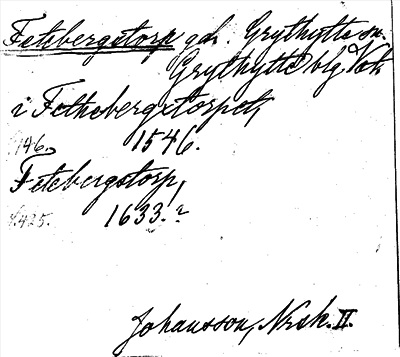 Fetebergstorp gd. Grythytte sn.
Grythytte blg Vstm
i Fethebergztorpet,
s. 146. 1546.
Fetebergstorp,
s. 425. 1633.?
Johansson, Norsk. II.